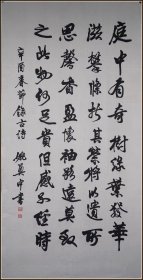 庭中有奇樹綠葉發華
滋攀條折其榮將以遺所
思馨香盈懷袖路遠莫致
之此物何足貴但感別經時
辛酉春節錄古詩 姚奠中書